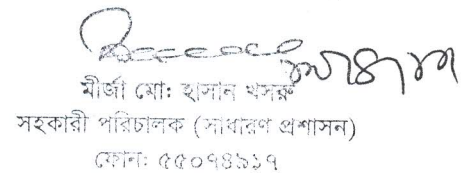 মীর্জা মোঃ হাসান খসরু
সহকারী পরিচালক (সাধারণ প্রশাসন)
ফোনঃ ৫৫০৭৪৯১৭